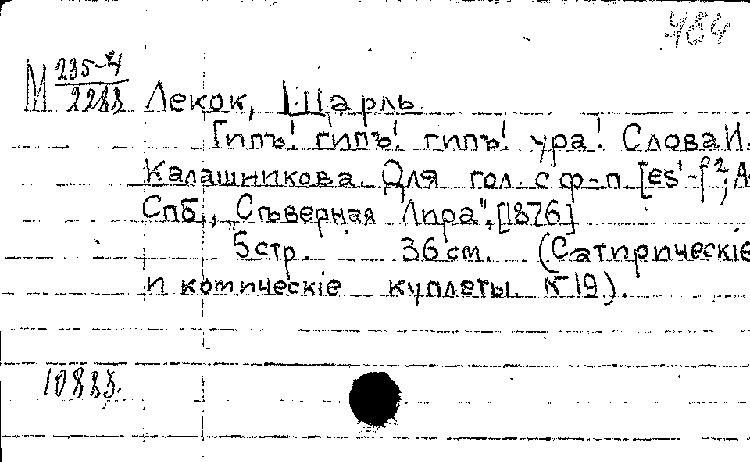 484
М 235-4/2288 Лекок, Шарль.
Гипъ! гипъ! гипъ! ура! Слова И.
Калашникова. Для гол. с ф-п. [es¹-f²; A
Спб., „Съверная Лира", [1876]
5 стр. 36 см. (Сатирическіе
и комическіе куплеты. №19).
10885.